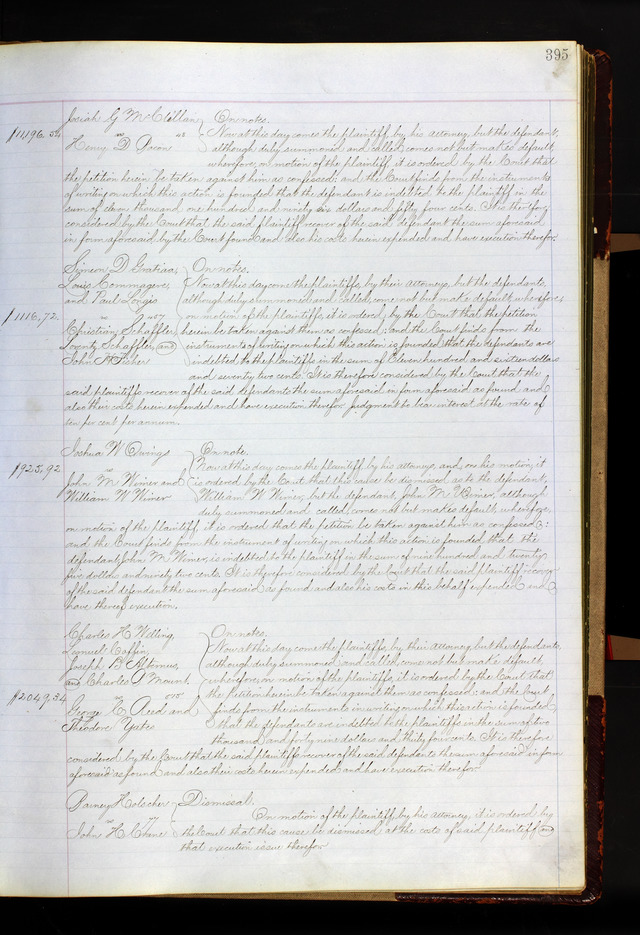 395
Josiah G McClellan On notes.
$11,196.54 vs Now at this day comes the plaintiff by his attorney, but the defendant,
Henry D Bacon although duly summoned and called, comes not but makes default;
wherefore, on motion of the plaintiff it is ordered by the Court that
the petition herein be taken against him as confessed: and the Court finds from the instruments
of writing on which this action is founded that the defendant is indebted to the plaintiff in the
sum of eleven thousand one hundred and ninety six dollars and fifty four cents. It is therefore
considered by the Court that the said plaintiff recover of the said defendant the sum aforesaid
in form aforesaid by the Court found and also his costs herein expended and have execution therefor.
Simeon D Gratiae, On notes.
Louis Commagere, Now at this day come the plaintiffs, by their attorneys, but the defendants
and Paul Longis although duly summoned and called, come not but make default, wherefore,
$1116,72. vs on motion of the plaintiffs, it is ordered by the Court that the petition
Christian Schaffter, herein be taken against them as confessed: and the Court finds from the
Schaffter, and instruments of writing on which this action is founded that the defendants are
John A Fisher indebted to the plaintiffs in the sum of Eleven hundred and sixteen dollars
and seventy two cents. It is therefore considered by the Court that the
said plaintiffs recover of the said defendants the sum aforesaid in form aforesaid as found and
also their costs herein expended and have execution therefor judgment to bear interest at the rate of
ten per cent per annum.
Joshua W Owings On note.
$925,92 vs Now at this day comes the plaintiff by his attorneys, and, on his motion, it
John M Wimer and is ordered by the Court that this cause be dismissed as to the defendant,
William W Wimer William W Wimer, but the defendant, John M Wimer, although
duly summoned and called, comes not but makes default, wherefore,
on motion of the plaintiff it is ordered that the petition be taken against him as confessed:
and the Court finds from the instrument of writing on which this action is founded that the
defendant, John M Wimer, is indebted to the plaintiff in the sum of nine hundred and twenty
five dollars and ninety two cents. It is therefore considered by the Court that the said plaintiff recover
of the said defendant the sum aforesaid as found and also his costs in this behalf expended and
have thereof execution.
Charles H Welling, On notes.
Lemuel Coffin, Now at this day come the plaintiffs, by their attorney, but the defendants,
Joseph B Altemus, although duly summoned and called, come not but make default
and Charles S Mount. wherefore, on motion of the plaintiffs, it is ordered by the Court that
$2049.34 vs the Petition herein be taken against them as confessed: and the Court
George C Reed and finds from the instruments in writing on which this action is founded
Theodore Yates that the defendants are indebted to the plaintiffs in the sum of two
thousand and forty nine dollars and thirty four cents. It is therefore
considered by the Court that the said plaintiffs recover of the said defendants the sum aforesaid in form
aforesaid as found and also their costs herein expended and have execution therefor
Holscher Dismissal.
vs On motion of the plaintiff, by his attorney, it is ordered by
John H Crane the Court that this cause be dismissed at the costs of said plaintiff and
that execution issue therefor